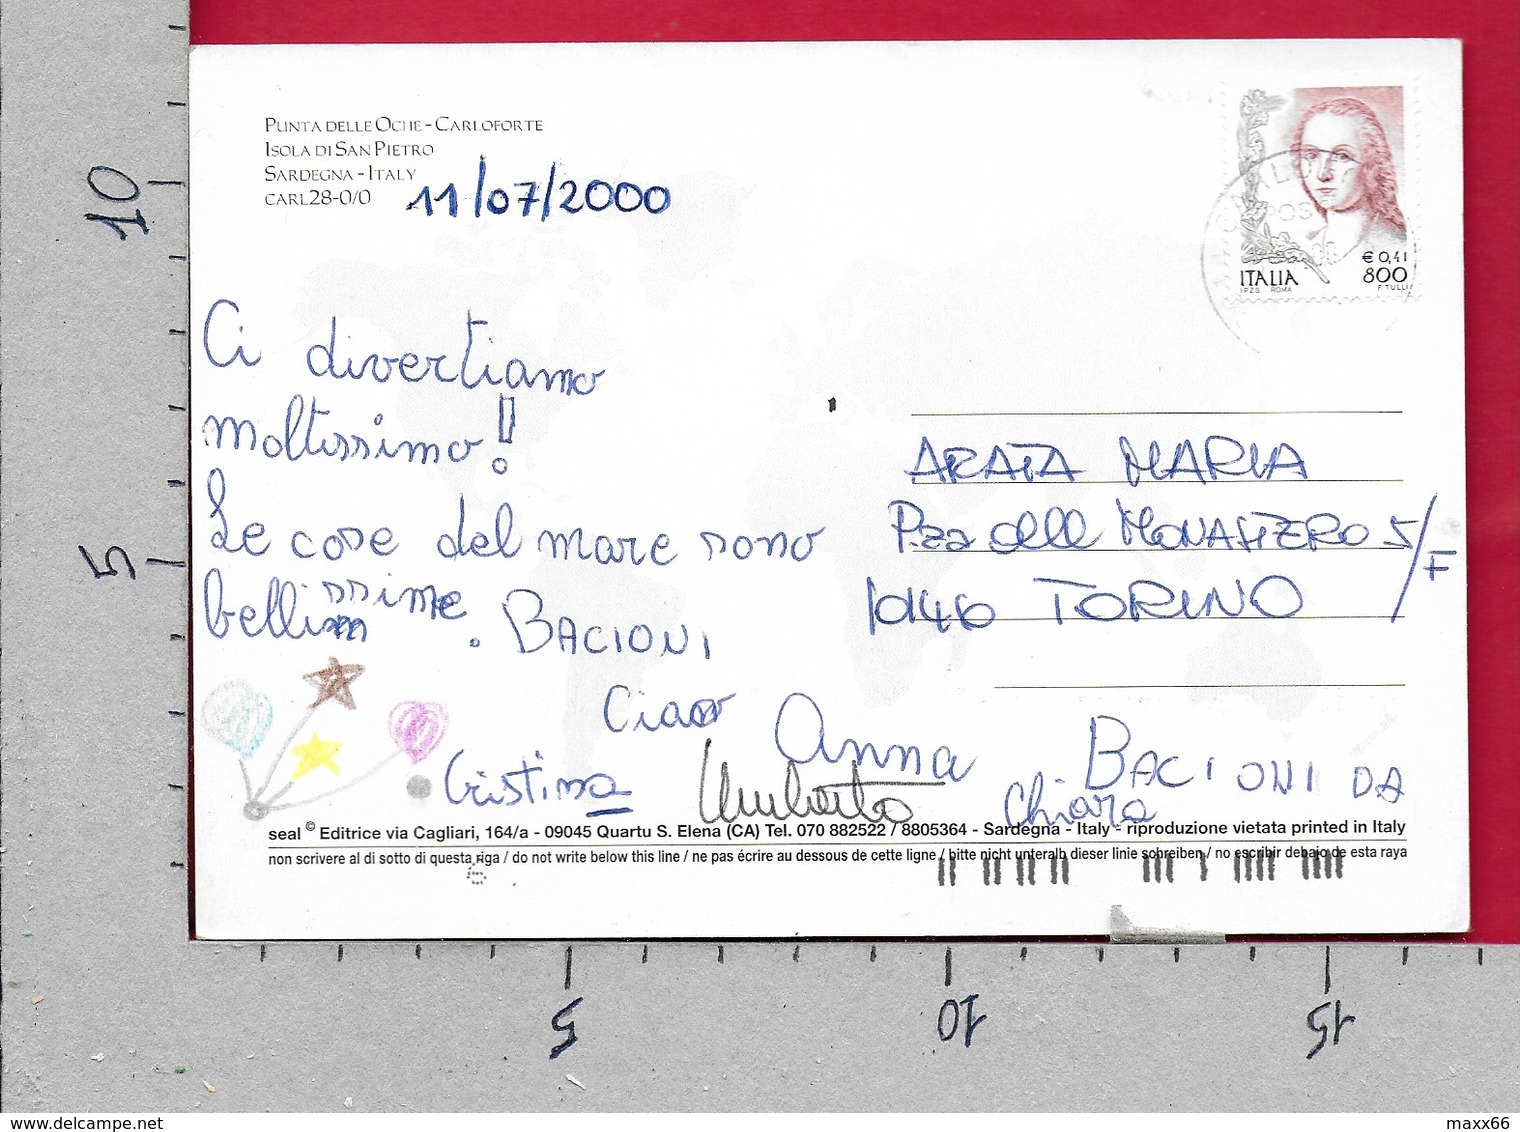 PUNTA DELLE OCHE - CARLOFORTE
ISOLA DI SAN PIETRO
SARDEGNA - ITALY
CARL28-0/0
11/07/2000
ITALIA
€ 0,41
800
I.P.Z.S. ROMA
F. TULLI
Ci divertiamo
moltissimo!
Le cose del mare sono
bellissime. BACIONI
Ciao
Cristina
Umberto
Anna
BACIONI DA
Chiara
ARATA MARIA
P.zza dell MONASTERO 5/F
10146 TORINO
seal © Editrice via Cagliari, 164/a - 09045 Quartu S. Elena (CA) Tel. 070 882522 / 8805364 - Sardegna - Italy - riproduzione vietata printed in Italy
non scrivere al di sotto di questa riga / do not write below this line / ne pas écrire au dessous de cette ligne / bitte nicht unteralb dieser linie schreiben / no escribir debajo de esta raya
10
5
5
10
15
www.delcampe.net
maxx66